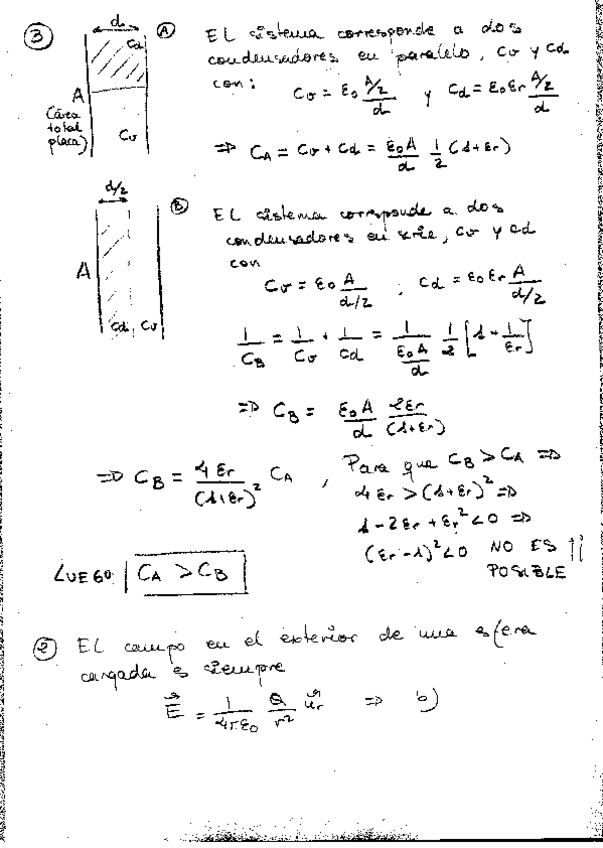 ③
d
Cd
A
(área
total
placa)
Cv
Ⓐ EL sistema corresponde a dos
condensadores en paralelo, Cv y Cd
con: Cv = ε0 A/2 / d y Cd = ε0 εr A/2 / d
⇒ CA = Cv + Cd = ε0 A / d 1/2 (1+εr)
d/2
A
Cd Cv
Ⓑ EL sistema corresponde a dos
condensadores en serie, Cv y Cd
con
Cv = ε0 A / d/2 ; Cd = ε0 εr A / d/2
1/CB = 1/Cv + 1/Cd = 1 / (ε0 A / d) 1/2 [1 + 1/εr]
⇒ CB = ε0 A / d 2εr / (1+εr)
⇒ CB = 4 εr / (1+εr)² CA , Para que CB > CA ⇒
4 εr > (1+εr)² ⇒
1 - 2εr + εr² < 0 ⇒
(εr - 1)² < 0 NO ES
POSIBLE !!
LUEGO: CA > CB
② EL campo en el exterior de una esfera
cargada es siempre
E⃗ = 1 / 4πε0 Q / r² u⃗r ⇒ b)